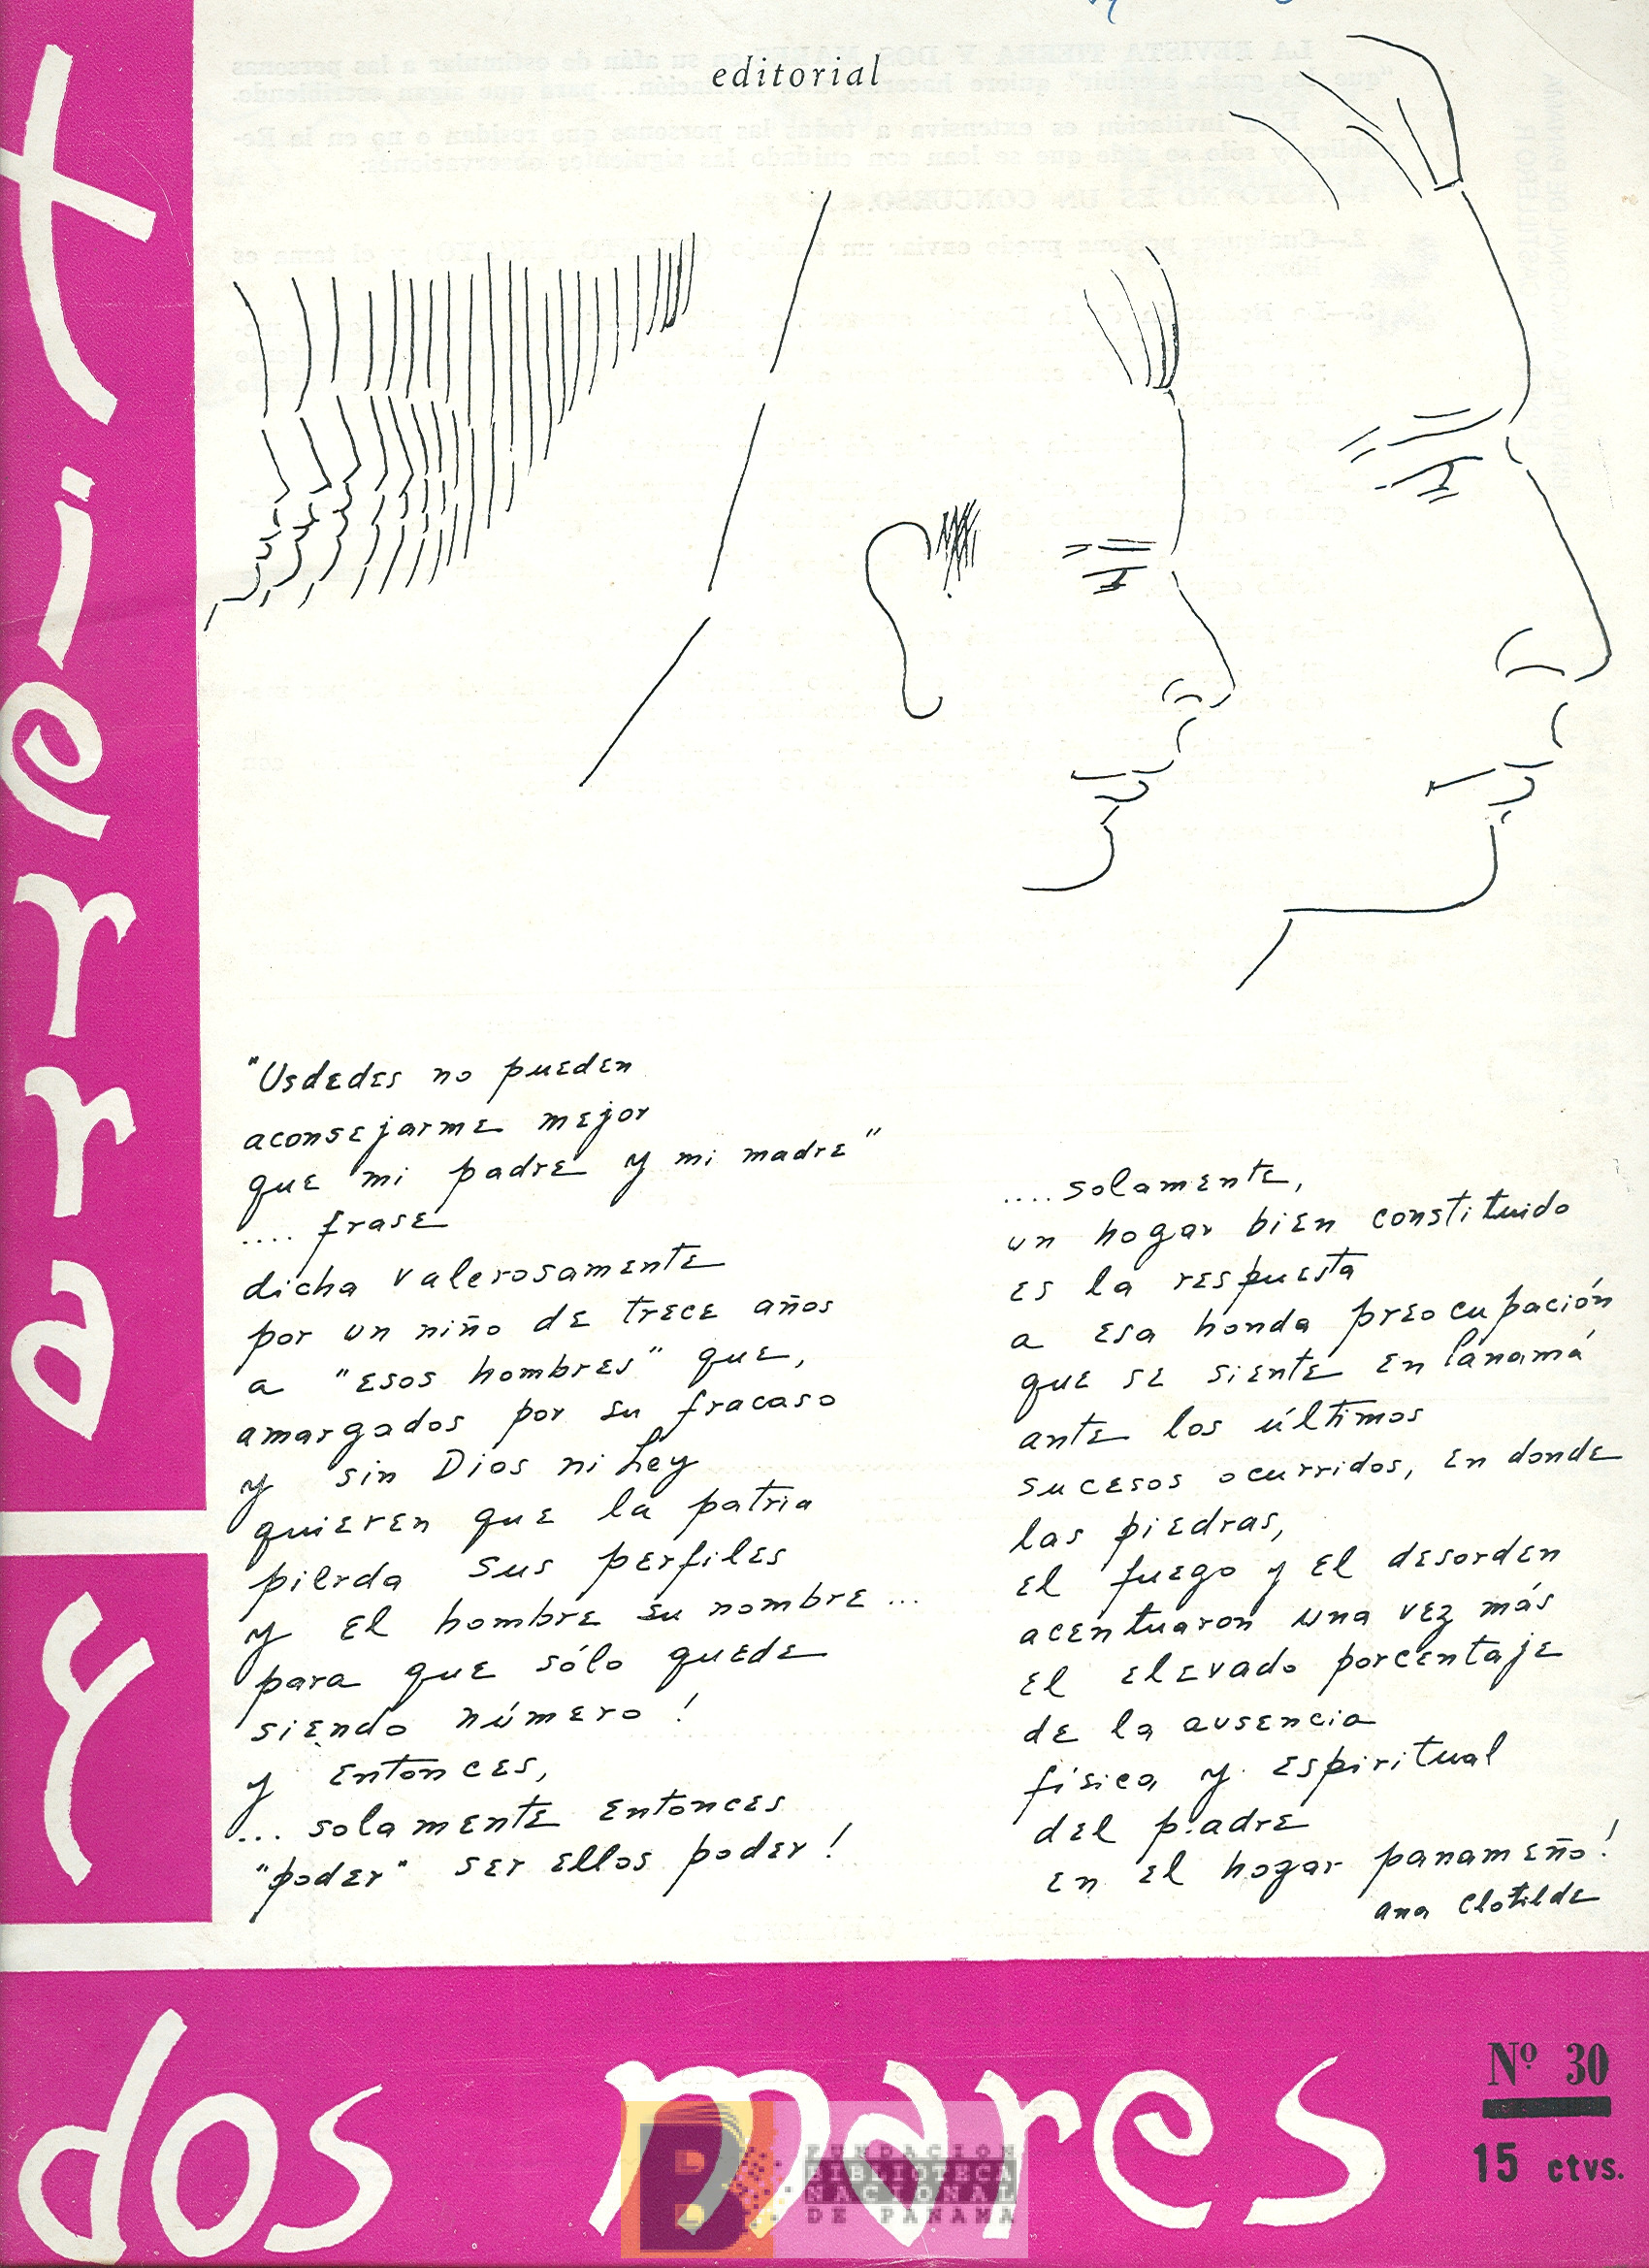 editorial
tierra
y
dos mares
"Usdedes no pueden
aconsejarme mejor
que mi padre y mi madre"
.... frase
dicha valerosamente
por un niño de trece años
a "esos hombres" que,
amargados por su fracaso
y sin Dios ni Ley
quieren que la patria
pierda sus perfiles
y el hombre su nombre ...
para que sólo quede
siendo número !
y entonces,
... solamente entonces
"poder" ser ellos poder !
.... solamente,
un hogar bien constituido
es la respuesta
a esa honda preocupación
que se siente en Panamá
ante los últimos
sucesos ocurridos, en donde
las piedras,
el fuego y el desorden
acentuaron una vez más
el elevado porcentaje
de la ausencia
física y espiritual
del padre
en el hogar panameño !
Ana Clotilde
Nº 30
15 ctvs.
B
FUNDACIÓN
BIBLIOTECA
NACIONAL
DE PANAMÁ